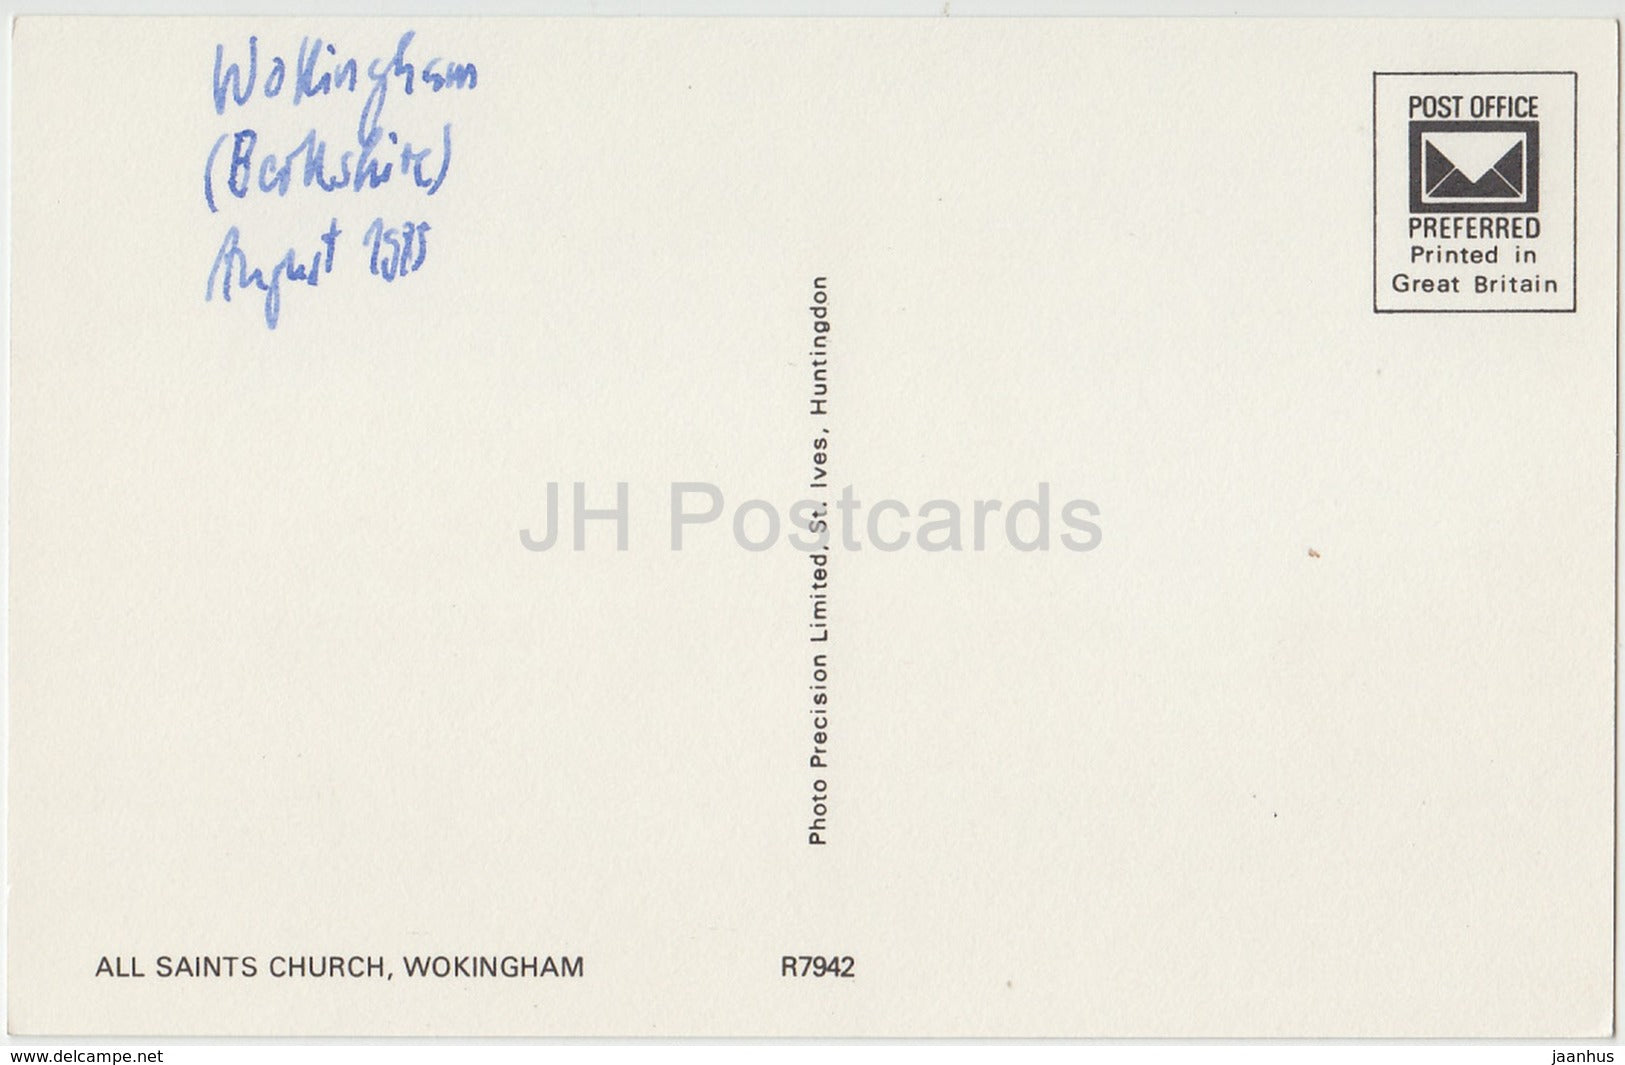 Wokingham
(Berkshire)
August
POST OFFICE
PREFERRED
Printed in
Great Britain
Photo Precision Limited, St. Ives, Huntingdon
JH Postcards
ALL SAINTS CHURCH, WOKINGHAM R7942
www.delcampe.net jaanhus